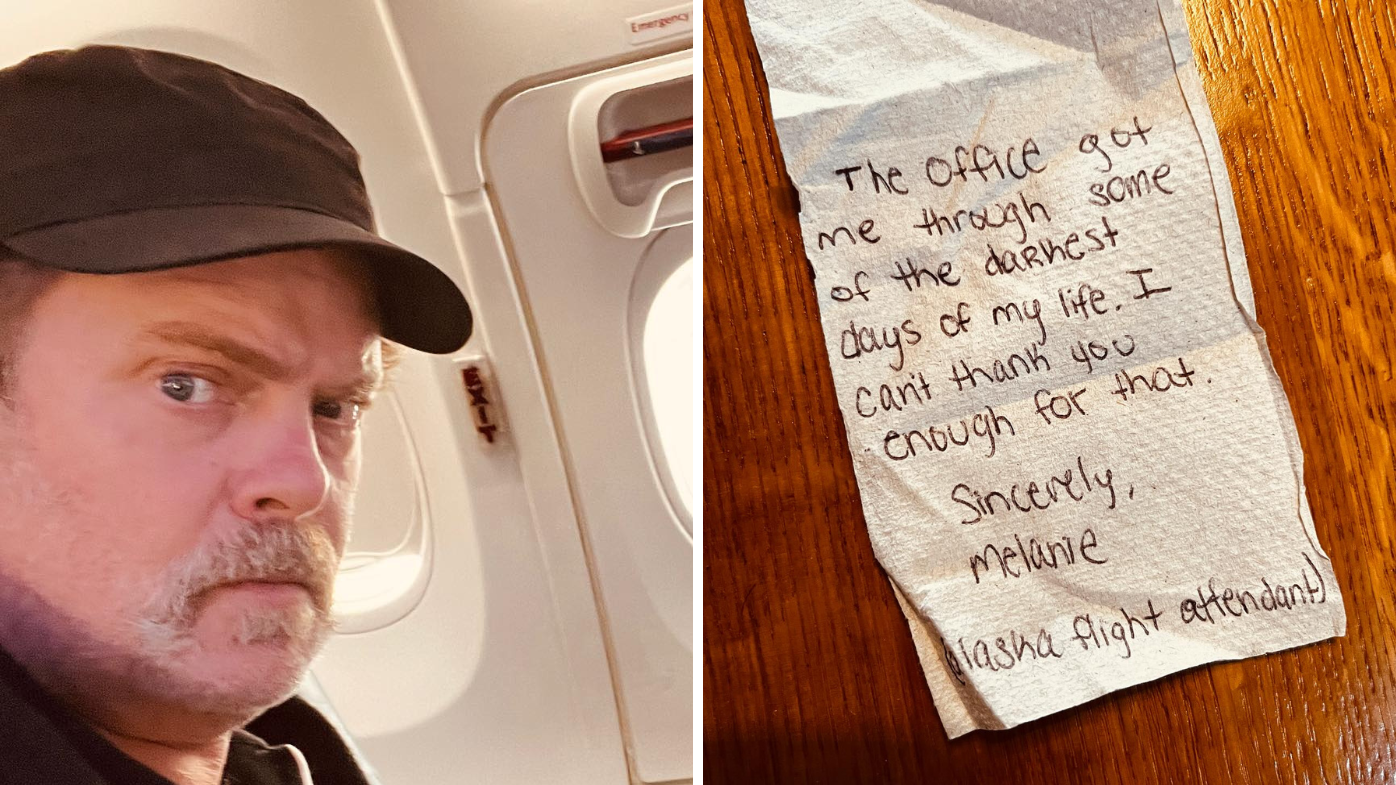 Emergency
EXIT
The Office got
me through some
of the darkest
days of my life. I
can't thank you
enough for that.
Sincerely,
Melanie
(Alaska flight attendant)